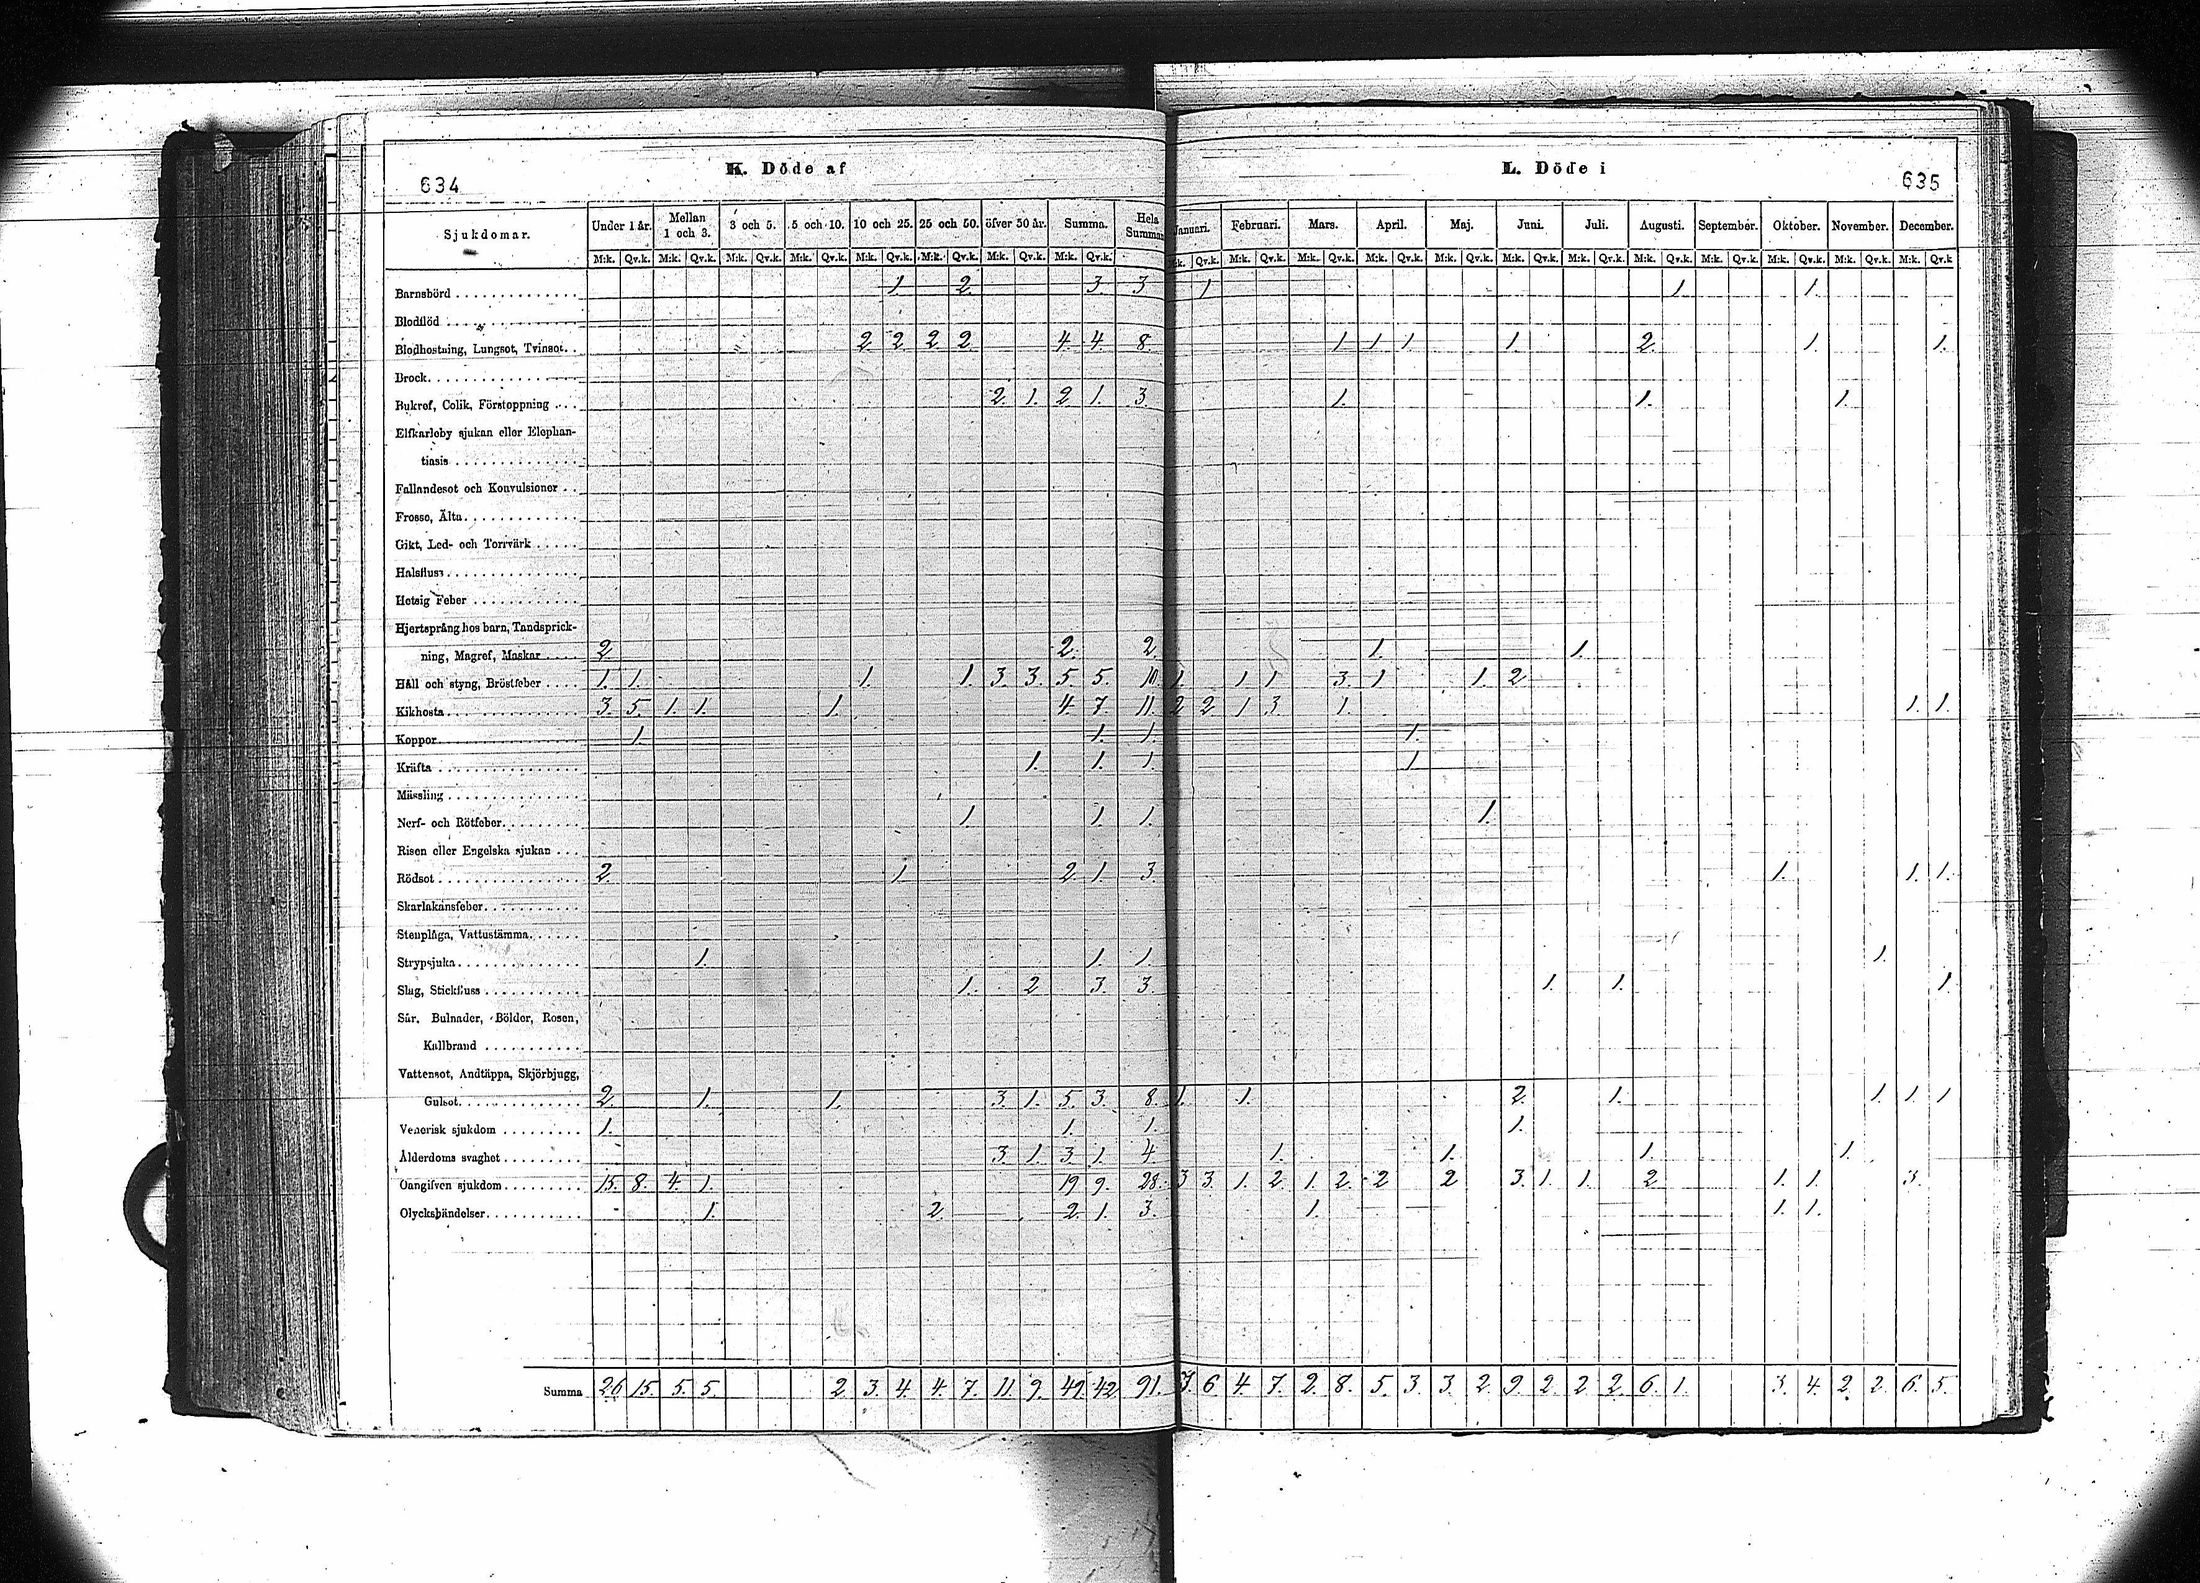 634
K. Döde af
L. Döde i
635
Sjukdomar. Under 1 år. Mellan 1 och 3. 3 och 5. 5 och 10. 10 och 25. 25 och 50. öfver 50 år. Summa. Hela Summan Januari. Februari. Mars. April. Maj. Juni. Juli. Augusti. September. Oktober. November. December.
M:k. Qv.k. M:k. Qv.k. M:k. Qv.k. M:k. Qv.k. M:k. Qv.k. M:k. Qv.k. M:k. Qv.k. M:k. Qv.k. M:k. Qv.k. M:k. Qv.k. M:k. Qv.k. M:k. Qv.k. M:k. Qv.k. M:k. Qv.k. M:k. Qv.k. M:k. Qv.k. M:k. Qv.k. M:k. Qv.k. M:k. Qv.k. M:k. Qv.k
Barnsbörd 1. 2. 3. 3 1 1. 1.
Blodflöd
Blodhostning, Lungsot, Tvinsot. 2 2 2 2. 4. 4. 8. 1 1 1 1. 2. 1. 1.
Brock
Bukref, Colik, Förstoppning 2. 1. 2 1. 3. 1. 1. 1.
Elfkarleby sjukan eller Elephan-
tiasis
Fallandesot och Konvulsioner
Frossa, Älta
Gikt, Led- och Torrvärk
Halsfluss
Hetsig Feber
Hjertsprång hos barn, Tandsprick-
ning, Magref, Maskar 2 2. 2. 1. 1.
Håll och styng, Bröstfeber 1. 1. 1. 1. 3. 3. 5 5. 10. 1. 1 1 3. 1 1. 2
Kikhosta 3. 5. 1. 1. 1. 4. 7. 11. 2 2. 1 3. 1. 1. 1.
Koppor 1. 1. 1. 1.
Kräfta 1. 1. 1. 1
Mässling
Nerf- och Rötfeber 1. 1. 1. 1.
Risen eller Engelska sjukan
Rödsot 2. 1 2. 1 3. 1. 1. 1.
Skarlakansfeber
Stenplåga, Vattustämma
Strypsjuka 1. 1 1 1.
Slag, Stickfluss 1. 2 3. 3. 1. 1. 1
Sår, Bulnader, Bölder, Rosen,
Kallbrand
Vattensot, Andtäppa, Skjörbjugg,
Gulsot 2. 1. 1. 3. 1. 5. 3. 8. 1. 1. 2. 1. 1. 1. 1
Venerisk sjukdom 1. 1. 1. 1.
Ålderdoms svaghet 3. 1. 3. 1. 4 1. 1. 1. 1.
Oangifven sjukdom 15. 8. 4. 1. 19 9. 28. 3 3. 1. 2 1. 2. 2 2 3. 1 1. 2 1. 1. 3.
Olyckshändelser 1. 2. 2. 1. 3. 1. 1. 1.
Summa 26 15. 5. 5. 2. 3. 4. 4. 7. 11. 9. 49. 42 91. 7. 6 4. 7. 2. 8. 5. 3. 3. 2. 9. 2. 2 2. 6. 1. 3. 4. 2 2. 6. 5.